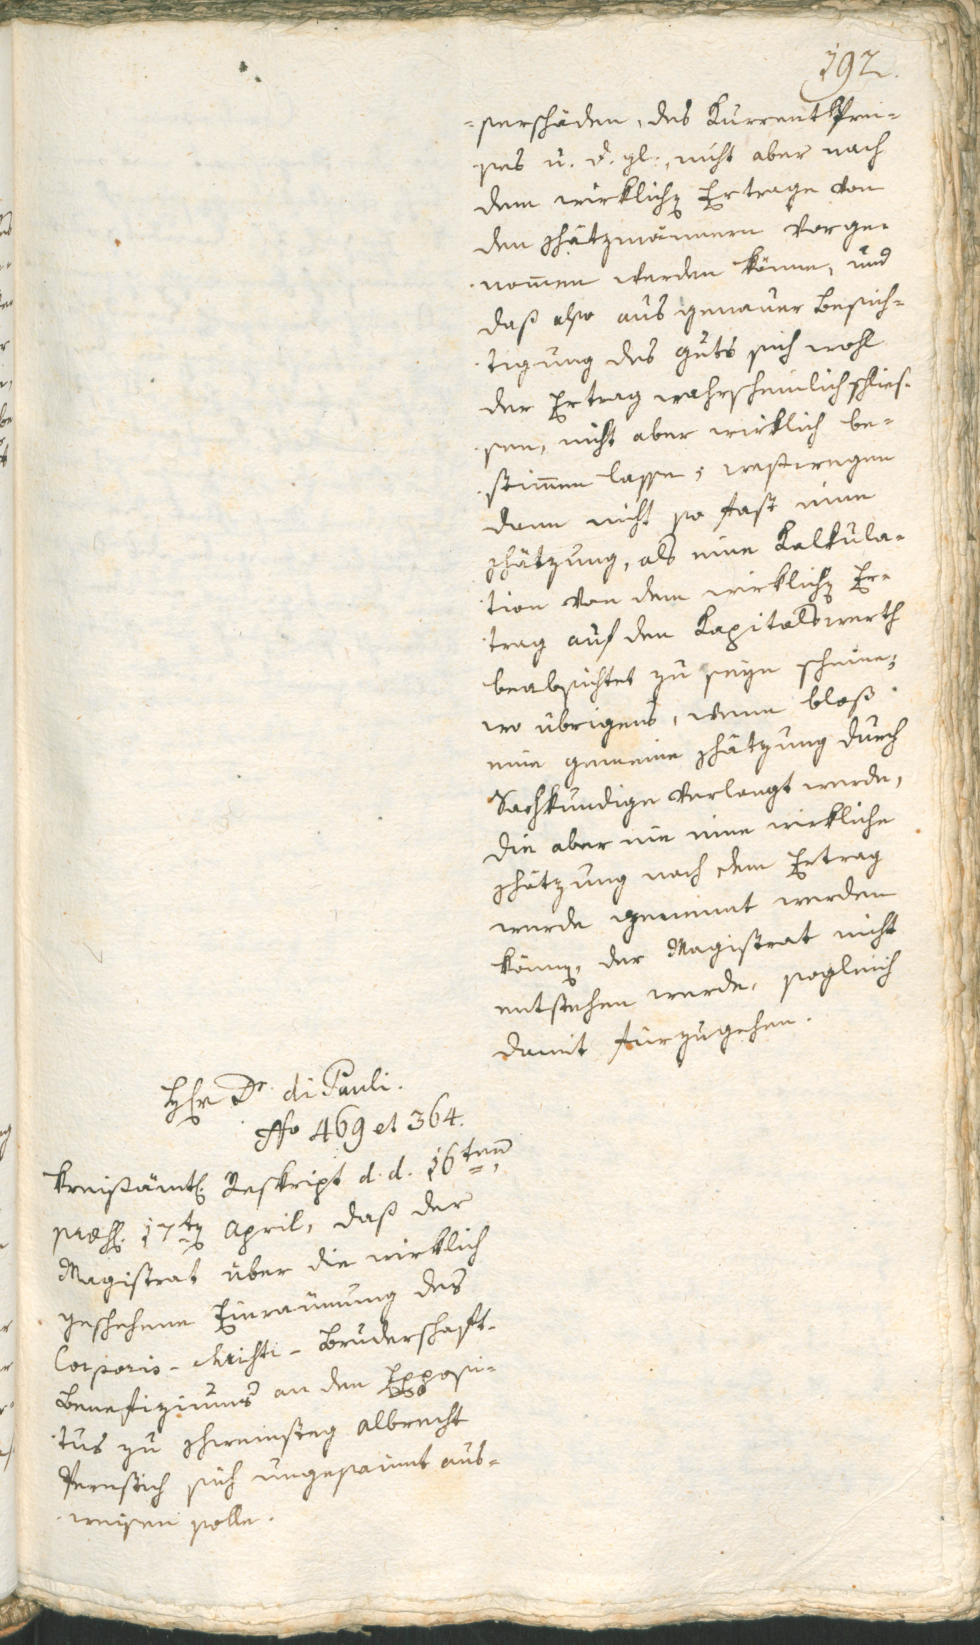 192.
-serschäden, des Kurrent Prei-
ses u. d. gl., nicht aber nach
dem wirklichen Ertrage von
den Schätzmännern vorge-
nommen werden könne, und
daß also aus genauer Besich-
tigung des Guts sich wohl
der Ertrag wahrscheinlich schlies-
sen, nicht aber wirklich be-
stimmen lasse; waßwegen
dann nicht so fast eine
Schätzung, als eine Kalkula-
tion von dem wirklichen Er-
trag auf den Kapitalswerth
beabsichtet zu seyn scheine;
wo übrigens, wenn bloß
eine gemeine Schätzung durch
Sachkundige verlangt werde,
die aber nie eine wirkliche
Schätzung nach dem Ertrag
werde genennt werden
können, der Magistrat nicht
entstehen werde, sogleich
damit fürzugehen.
Hr Dr. di Pauli.
No 469 et 364.
Kreisämtl. Reskript d. d. 16ten,
præs. 17ten April, daß der
Magistrat über die wirklich
geschehene Einräumung des
Corporis-Christi-Bruderschaft-
Benefiziums an den Exposi-
tus zu Schweinsteg Albrecht
sich ungesaumt aus-
weisen solle.